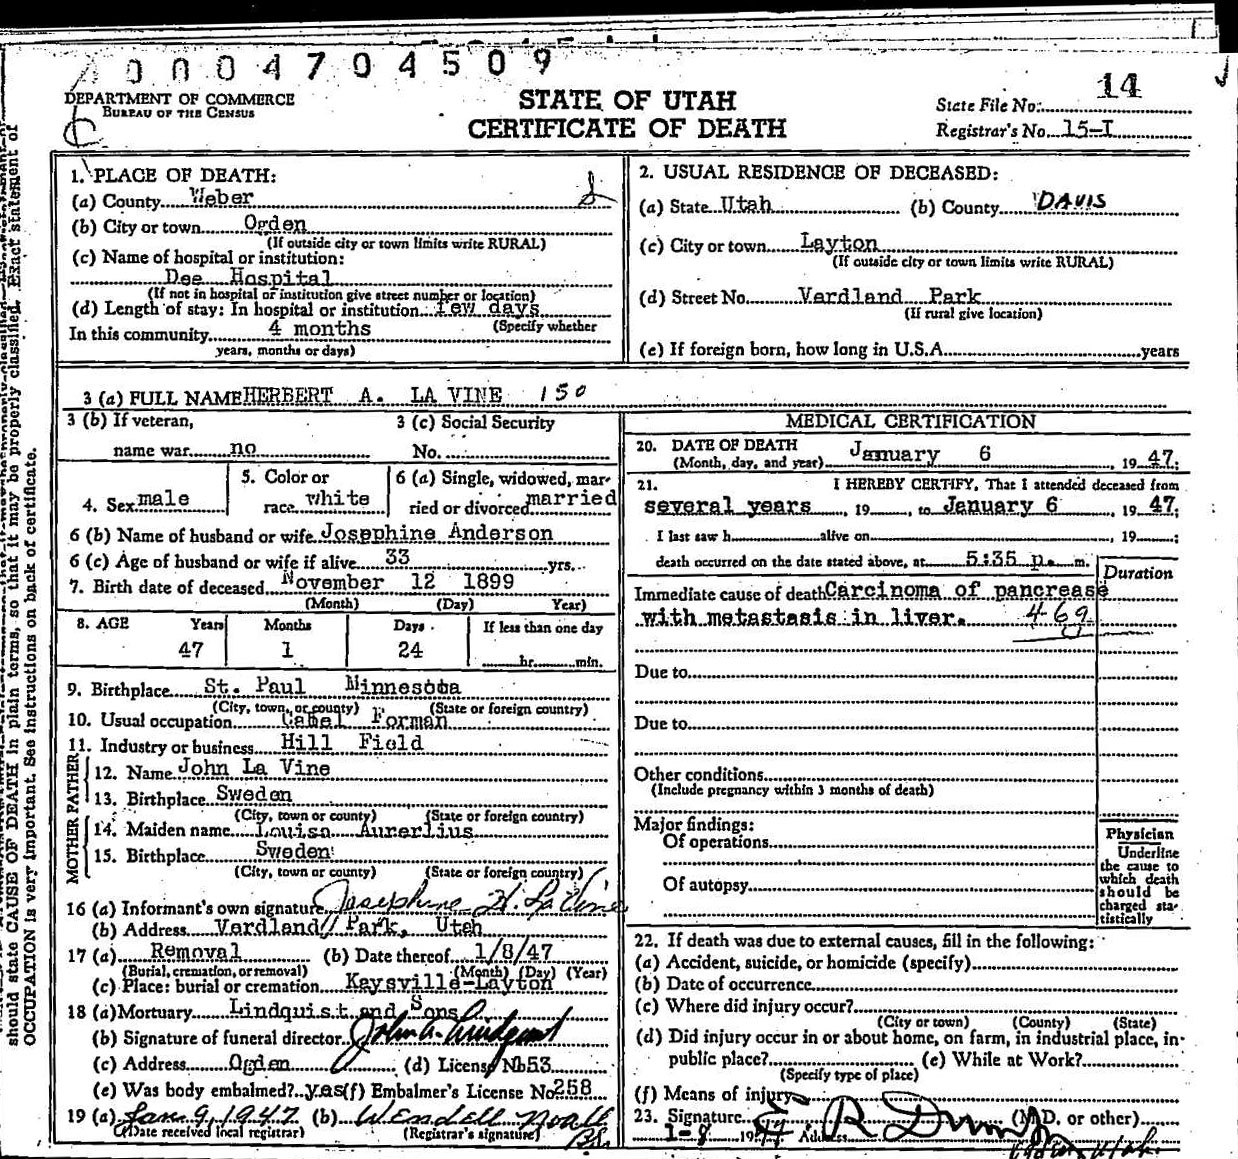 0004704509
DEPARTMENT OF COMMERCE
BUREAU OF THE CENSUS
STATE OF UTAH
CERTIFICATE OF DEATH
State File No. 14
Registrar's No. 15-I
1. PLACE OF DEATH:
(a) County Weber
(b) City or town Ogden
(If outside city or town limits write RURAL)
(c) Name of hospital or institution:
Dee Hospital
(If not in hospital or institution give street number or location)
(d) Length of stay: In hospital or institution few days
(Specify whether
In this community 4 months
years, months or days)
2. USUAL RESIDENCE OF DECEASED:
(a) State Utah (b) County DAVIS
(c) City or town Layton
(If outside city or town limits write RURAL)
(d) Street No. Verdland Park
(If rural give location)
(e) If foreign born, how long in U.S.A. years
3 (a) FULL NAME HERBERT A. LA VINE 150
3 (b) If veteran, 3 (c) Social Security
name war no No.
4. Sex male
5. Color or
race white
6 (a) Single, widowed, mar-
ried or divorced married
6 (b) Name of husband or wife Josephine Anderson
6 (c) Age of husband or wife if alive 33 yrs.
7. Birth date of deceased November 12 1899
(Month) (Day) Year)
8. AGE Years Months Days If less than one day
47 1 24 hr. min.
9. Birthplace St. Paul Minnesota
(City, town, or county) (State or foreign country)
10. Usual occupation Cabel Forman
11. Industry or business Hill Field
FATHER
12. Name John La Vine
13. Birthplace Sweden
(City, town or county) (State or foreign country)
MOTHER
14. Maiden name Louisa Aurerlius
15. Birthplace Sweden
(City, town or county) (State or foreign country)
16 (a) Informant's own signature Josephine H. La Vine
(b) Address Verdland Park, Utah
17 (a) Removal (b) Date thereof 1/8/47
(Burial, cremation, or removal) (Month) (Day) (Year)
(c) Place: burial or cremation Kaysville-Layton
18 (a) Mortuary Lindquist and Sons
(b) Signature of funeral director John A. Lindquist
(c) Address Ogden (d) License No. 53
(e) Was body embalmed? yes (f) Embalmer's License No. 258
19 (a) Jan 9, 1947 (b) Wendell Noall
(Date received local registrar) (Registrar's signature)
MEDICAL CERTIFICATION
20. DATE OF DEATH
(Month, day, and year) January 6, 1947;
21. I HEREBY CERTIFY, That I attended deceased from
several years, 19, to January 6, 1947;
I last saw h alive on, 19;
death occurred on the date stated above, at 5:35 p. m.
Duration
Immediate cause of death Carcinoma of pancrease
with metastasis in liver. 469
Due to
Due to
Other conditions
(Include pregnancy within 3 months of death)
Major findings:
Of operations
Of autopsy
Physician
Underline
the cause to
which death
should be
charged sta-
tistically
22. If death was due to external causes, fill in the following:
(a) Accident, suicide, or homicide (specify)
(b) Date of occurrence
(c) Where did injury occur?
(City or town) (County) (State)
(d) Did injury occur in or about home, on farm, in industrial place, in-
public place? (e) While at Work?
(Specify type of place)
(f) Means of injury
23. Signature (M.D. or other)
1-8 1947 Address Ogden, Utah.
should state CAUSE OF DEATH in plain terms, so that it may be properly classified. Exact statement of
OCCUPATION is very important. See instructions on back of certificate.